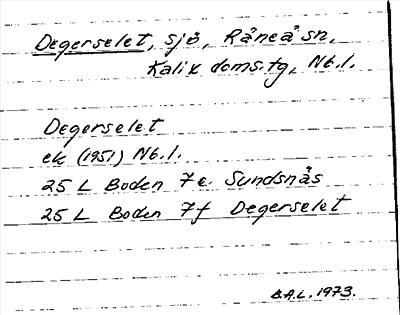 Degerselet, sjö, Råneå sn,
Kalix doms.tg, Nb.l.
Degerselet
ek (1951) Nb.l.
25 L Boden 7e Sundsnäs
25 L Boden 7f Degerselet
B.A.L. 1973.